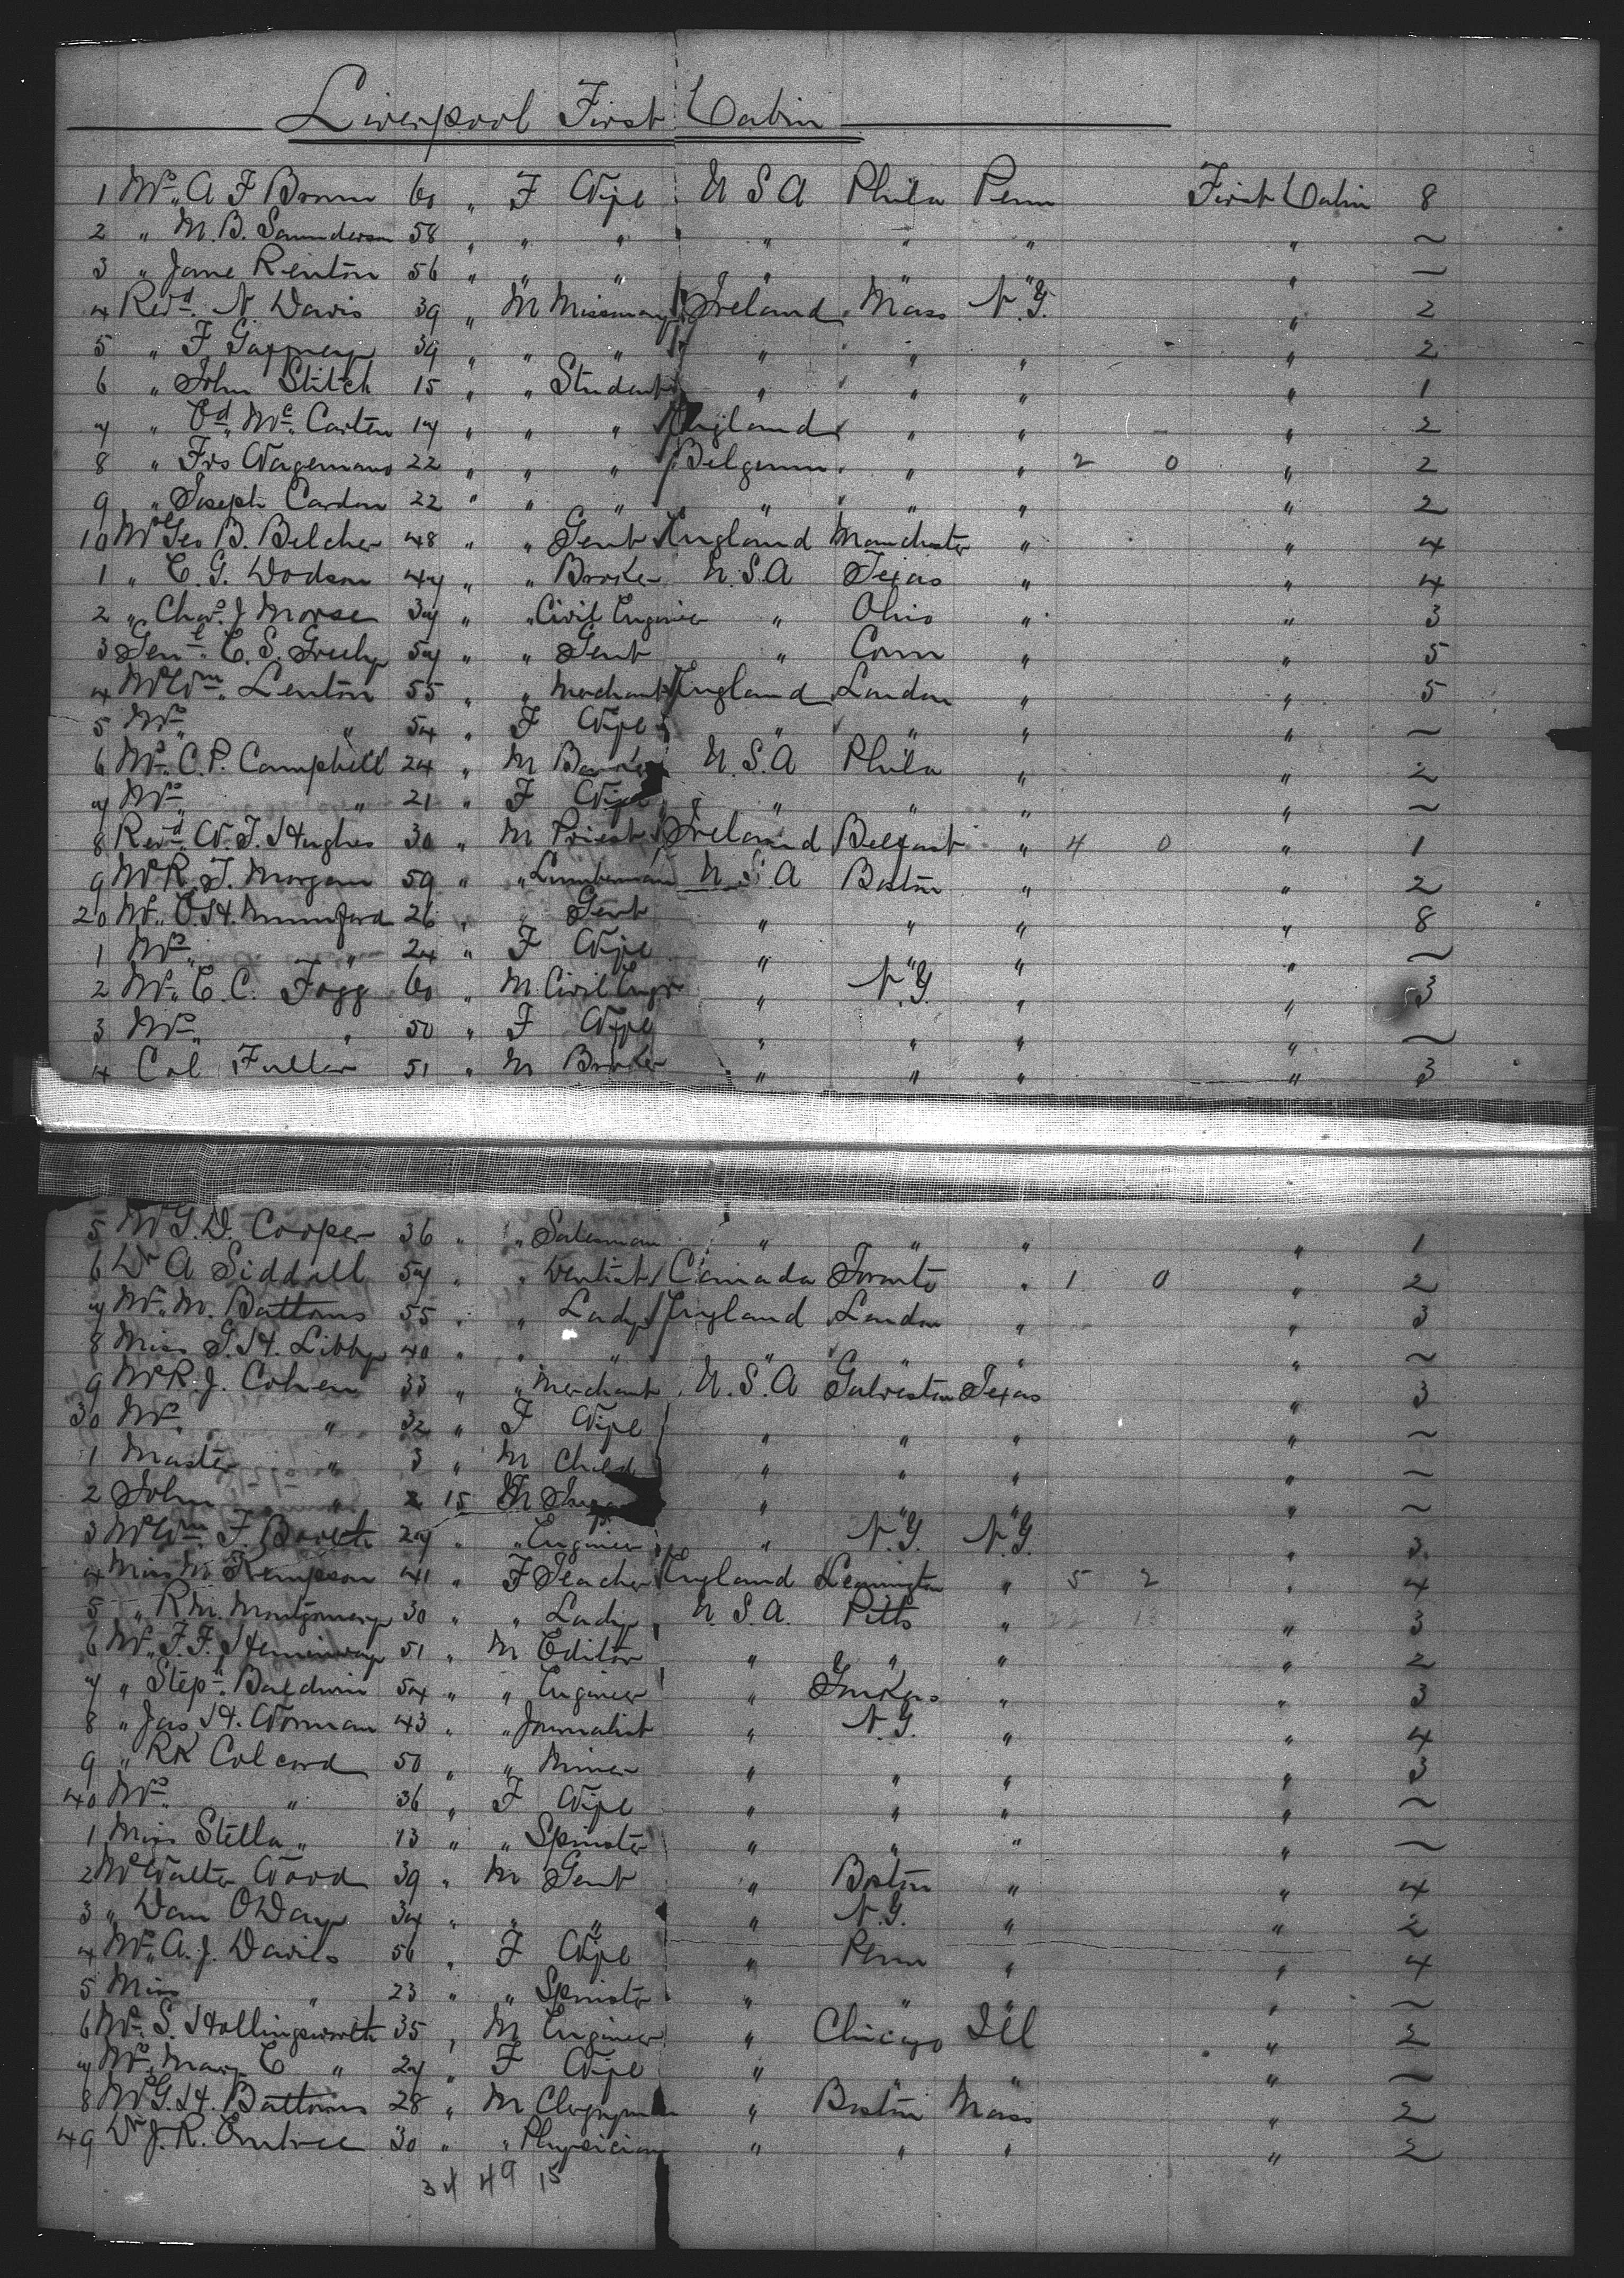 Liverpool First Cabin
1 Mrs. A F Brown 60 " F Wife U S A Phila Penn First Cabin 8
2 " M. B. Saunderson 58 " " " " " " " ~
3 " Jane Renton 56 " " " " " " " ~
4 Revd. N. Davis 39 " M Missionary Ireland Mass N.Y. " 2
5 " F. Gaffney 39 " " " " " " " 2
6 " John Stitch 15 " " Student " " " " 1
7 " Ed. Mc. Carten 17 " " " England " " " 2
8 " Frs Wagemans 22 " " " Belgium " " 2 0 " 2
9 " Joseph Cardon 22 " " " " " " " 2
10 Mr Geo B. Belcher 48 " " Gent England Manchester " " 4
1 " E. G. Dodson 47 " " Broker U.S.A Texas " " 4
2 " Chas. J Morse 37 " " Civil Engineer " Ohio " " 3
3 Genl. E. S. Greely 57 " " Gent " Conn " " 5
4 Mr Wm. Lenton 55 " " Merchant England London " " 5
5 Mrs. " 54 " F Wife " " " " ~
6 Mr. C. P. Campbell 24 " M U.S.A Phila " " 2
7 Mrs. " 21 " F Wife " " " " ~
8 Revd. W. J. Hughes 30 " M Priest Ireland Belfast " 4 0 " 1
9 Mr R. T. Morgan 59 " " Lumberman U.S.A Boston " " 2
20 Mr. E. H. Mumford 26 " " Gent " " " " 8
1 Mrs. " 24 " F Wife " " " " ~
2 Mr. E. C. Fogg 60 " M Civil Engr " N.Y. " " 3
3 Mrs. " 50 " F Wife " " " " ~
4 Col Fuller 51 " M Broker " " " " 3
5 Mr G. D. Cooper 36 " " Salesman " " " " 1
6 Dr A Siddall 57 " " Dentist Canada Toronto " 1 0 " 2
7 Mrs. M. Battoms 55 " " Lady England London " " 3
8 Miss G. H. Libby 40 " " " " " " " ~
9 Mr R. J. Cohen 33 " " Merchant U.S.A Galveston Texas " 3
30 Mrs. " 32 " F Wife " " " " ~
1 Master " 3 " M Child " " " " ~
2 John " 2 15 M " " " " ~
3 Mr Wm. F. 27 " " Engineer " N.Y. N.Y. " 3
4 Miss M. Kempson 41 " F Teacher England Leamington " 5 2 " 4
5 " R M. Montgomery 30 " " Lady U.S.A. Pitts " " 3
6 Mr. F. F. Hemenway 51 " M Editor " " " " 2
7 " Steph. Baldwin 54 " " Engineer " Yonkers " " 3
8 " Jas H. Worman 43 " " Journalist " N.Y. " " 4
9 " R K Colcord 50 " " Miner " " " " 3
40 Mrs. " 36 " F Wife " " " " ~
1 Miss Stella " 13 " " Spinster " " " " ~
2 Mr Walter Wood 39 " M Gent " Boston " " 4
3 " Dan O Day 34 " " " " N.Y. " " 2
4 Mrs. A. J. Davis 56 " F Wife " Penn " " 4
5 Miss " 23 " " Spinster " " " " ~
6 Mr. S. Hollingsworth 35 " M Engineer " Chicago Ill " 2
7 Mrs. Mary E " 27 " F Wife " " " " ~
8 Mr G. H. Battoms 28 " M Clergyman " Boston Mass " 2
49 Dr J. R. 30 " " Physician " " " " 2
34 49 15